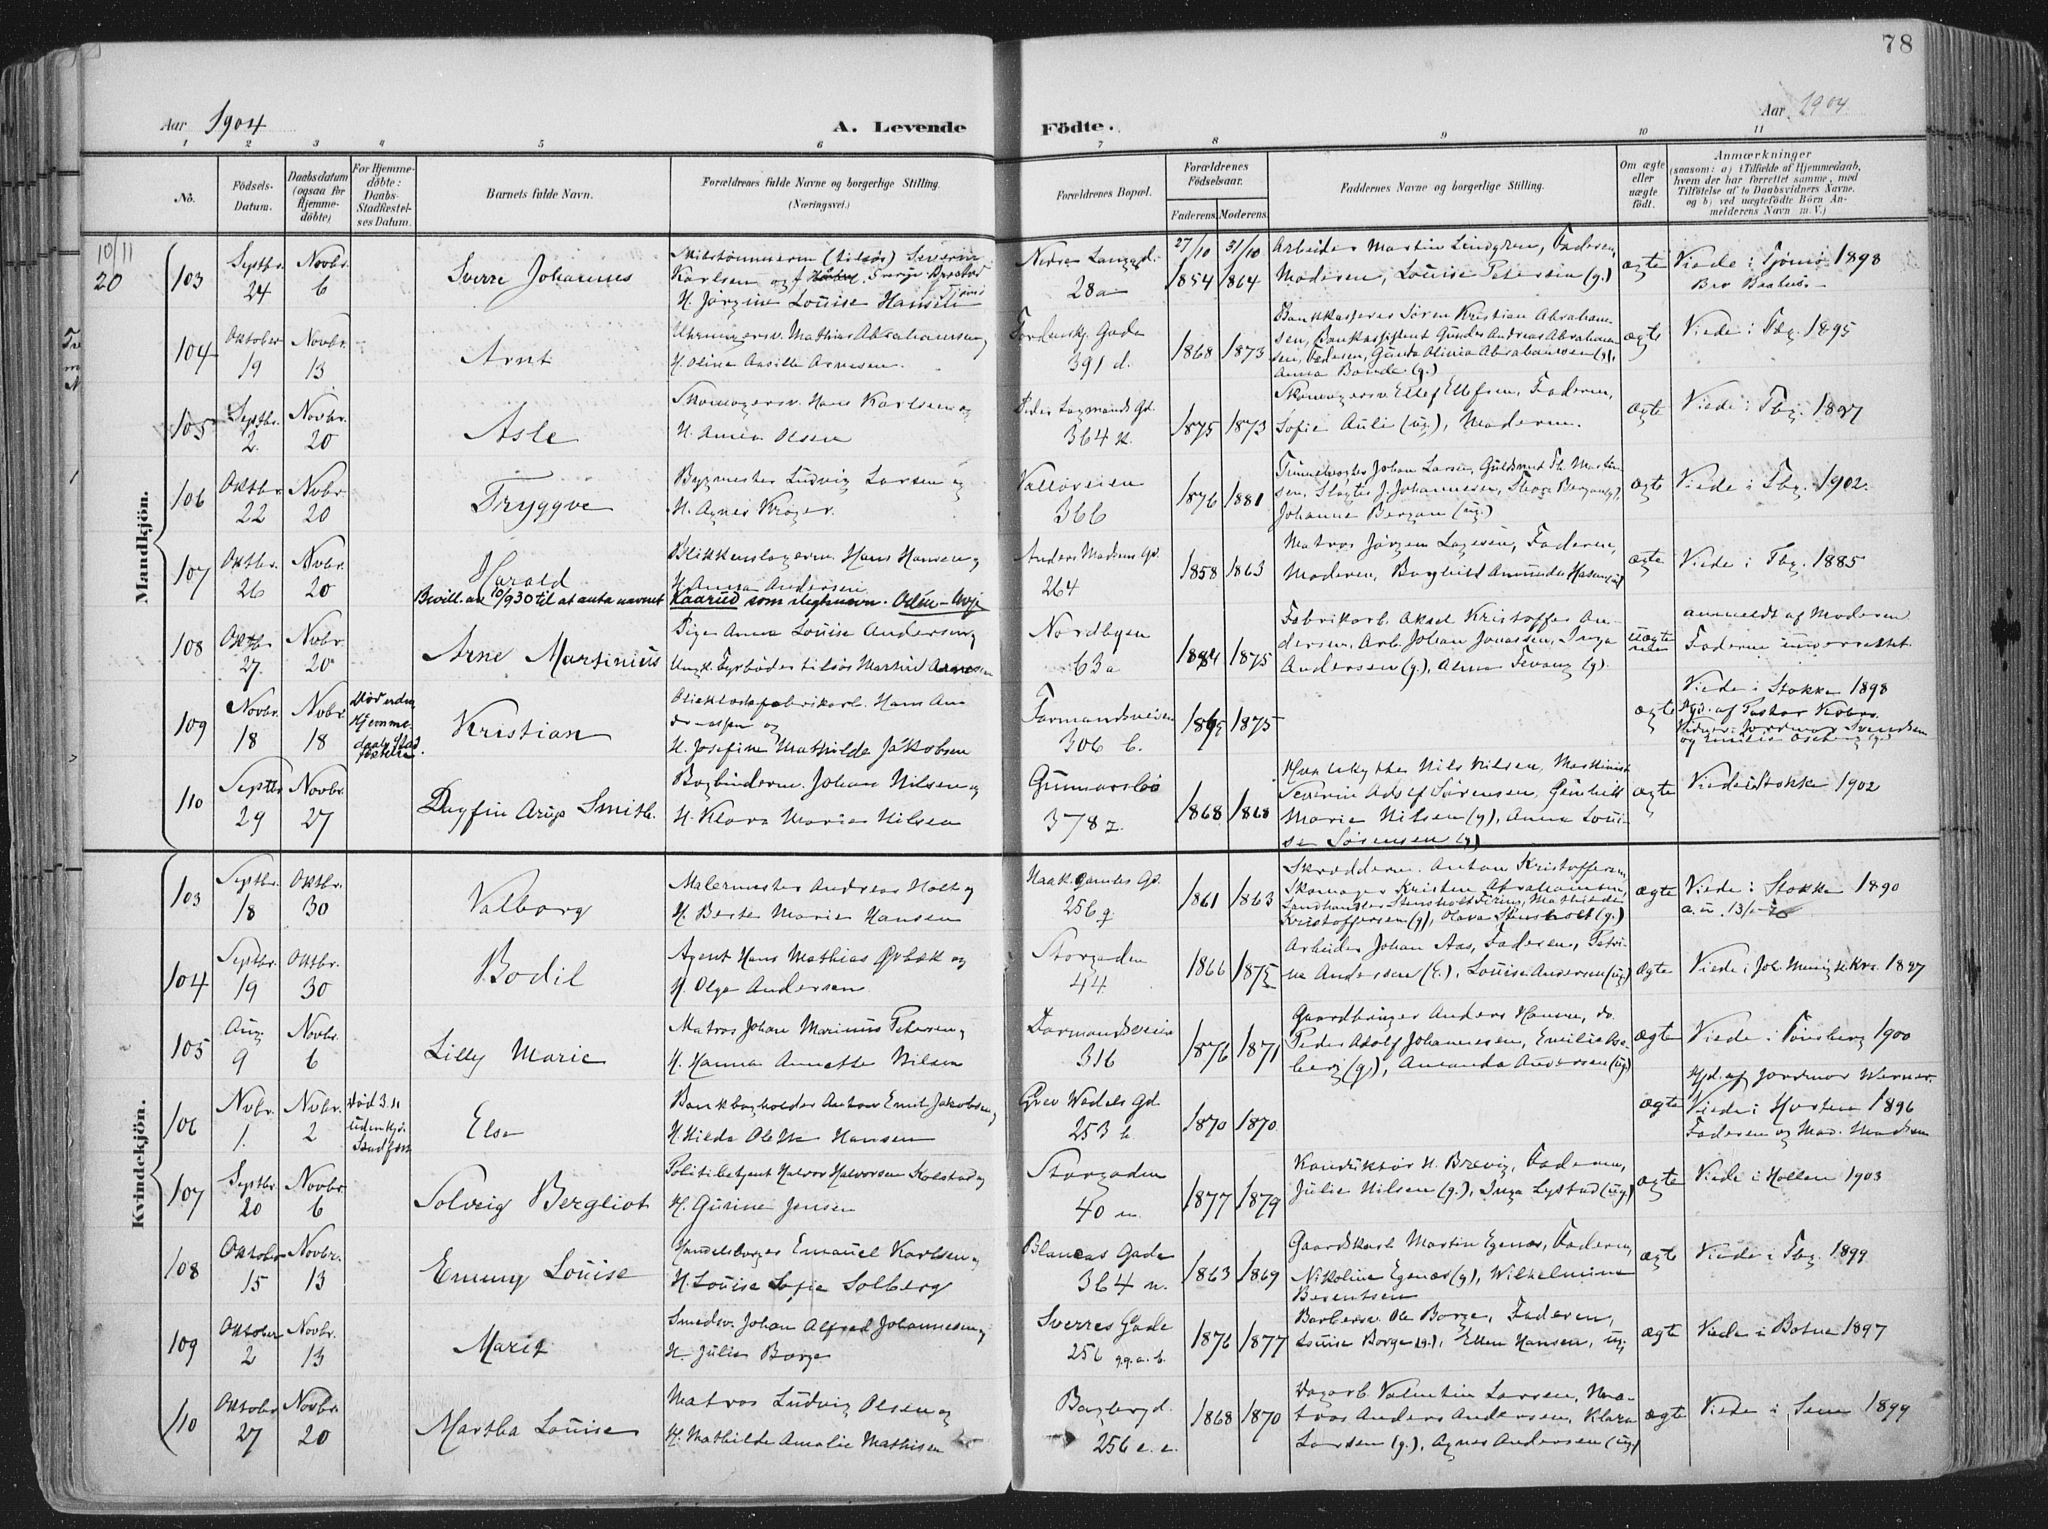 78
Aar 1904
A. Levende
Födte.
Aar 1904.
1 2 3 4 5 6 7 8 9 10 11
No.
Födsels-Datum.
Daabsdatum (ogsaa for Hjemmedöbte)
For Hjemmedöbte: Daabs-Stadfæstelses Datum.
Barnets fulde Navn.
Forældrenes fulde Navne og borgerlige Stilling. (Næringsvei.)
Forældrenes Bopæl.
Forældrenes Födselsaar.
Faderens. Moderens.
Faddernes Navne og borgerlige Stilling.
Om ægte eller uægte födt.
Anmærkninger
(saasom: a) i Tilfælde af Hjemmedaab, hvem der har forrettet samme, med Tilföielse af to Daabsvidners Navne, og b) ved uægtefödte Börn Anmelderens Navn m. V.)
Mandkjön.
10/11
20
103 Septbr. 24 Novbr. 6
Sverre Johannes
(tilsøs) Severin
Karlsen og
H. Jørgine Louise Hansen
28a
27/10 1854 31/10 1864
Arbeider Martin Lindgren, Faderen,
Moderen, Louise Petersen (g.)
ægte
Viede i Tjømø 1898
104 Oktober 19 Novbr. 13
Arnt
Uhrmagersv. Mathias Abrahamsen og
H. Oline Arnesen.
Tordenskj. Gade
391 d.
1868 1873
Bankkasserer Søren Kristian Abraham-
sen, Bankassistent Gunder Andreas Abraham-
sen, Faderen, Gunda Olivia Abrahamsen (g),
Anna Bonde (g.)
ægte
Viede i Tbg. 1895
105 Septbr. 2. Novbr. 20
Asle
Skomagersv. Hans Karlsen og
H. Anna Olsen
364 k.
1875 1873
Skomagersv. Ellef Ellefsen, Faderen,
Sofie Auli (ug.), Moderen.
ægte
Viede i Tbg. 1897
106 Oktbr. 22 Nvbr. 20
Tryggve
Bygmester Ludvig Larsen og
H. Agnes Krøger.
Valløveien
366
1876 1881
Johan Larsen, Guldsmed Th. Martin-
sen, Slagter J. Johannesen,
Johanne Bergan (ug.)
ægte
Viede i Tbg. 1902.
107 Oktbr. 26 Novbr. 20
Harald
Blikkenslagerm. Hans Hansen og
H. Anna Andersen
Anders Madsens Gd.
264
1858 1863
Matros Jørgen Lagesen, Faderen,
Moderen, Borghild Amunda Hansen
ægte
Viede i Tbg. 1885
Bevill. av 10/930 til at anta navnet Kaarud som slegtsnavn.
108 Oktbr. 27. Novbr. 20
Arne Martinius
Pige Anna Louise Andersen og
Ungk. Fyrbøder tilsøs Martin Arnessen
Nordbyen
63a
1884 1875
Fabrikarb. Aksel Kristoffer An-
dersen, Arb. Johan Jonassen, Inga
Anderssen (g.), Anna Tevang (g).
uægte
anmeldt af Moderen
Faderen
109 Novbr. 18 Novbr. 18
Død uden
Hjemme-
daabs Stad
fæstelse.
Kristian
Hans An-
dreassen og
H. Josefine Mathilde Jakobsen
Farmandsveien
306 b.
1875
ægte
Viede i Stokke 1898
110 Septbr. 29 Novbr. 27
Dagfin Smith.
Bogbinderm. Johan Nilsen og
H. Klara Marie Nilsen
Gunnarsbø
378 z.
1868 1868
Nils Nilsen, Maskinist
Severin Adolf Sørensen, Gunhild
Marie Nilsen (g), Anna Loui-
se Sørensen (g)
ægte
Viede i Stokke 1902
Kvindekjön.
103 Septbr. 18 Oktbr. 30
Valborg
Malermester Andreas Holt og
H. Berte Marie Hansen
256 q.
1861 1863
Skrædderm. Anton Kristoffersen,
Skomager Kristen Abrahamsen,
Kristoffersen (g), Olava Stensholt (g.)
ægte
Viede i Stokke 1890
104 Septbr. 19 Oktbr. 30
Bodil
Agent Hans Mathias Ørbæk og
H. Olga Andersen
Storgaden
44
1866 1875
Arbeider Johan Aas, Faderen, Petri-
ne Andersen (E.), Louise Andersen (ug)
ægte
Viede i Joh. Menigh. Kra. 1897
105 Aug. 9 Novbr. 6
Lilly Marie
Matros Johan Marinius Petersen og
H. Hanna Annette Nilsen
Farmandsveien
316
1876 1871
Gaardbruger Anders Hansen, do.
Peder Adolf Johannessen, Emilie As-
berg (g.), Amanda Anderssen (ug)
ægte
Viede i Tønsberg 1900
106 Nvbr. 1. Nvbr. 2
død 3.11
uden Hj.
Stadfæst
Else
Bankbogholder Anton Emil Jakobsen og
H. Hilda Hansen
Grev Wedels Gd.
253 b.
1870 1870
ægte
Hjd. af Jordmor Werner.
Viede i Horten 1896
Faderen og Mad. Madsen
107 Septbr. 20 Novbr. 6
Solveig Bergliot
Politibetjent Halvor Halvorsen Kolstad og
H. Gurine Jensen
Storgaden
40 m.
1877 1879
Konduktør H. Brevig, Faderen,
Julie Nilsen (g.), Inga Lystad (ug)
ægte
Viede i Hollen 1903
108 Oktober 15 Novbr. 13
Emmy Louise
Emanuel Karlsen og
H. Louise Sofie Solberg
Blancas Gade
364 n.
1863 1869
Gaardskarl Martin Egenæs, Faderen,
Nikoline Egenæs (g), Wilhelmine
Berentsen
ægte
Viede i Tbg. 1899
109 Oktober 2 Novbr. 13
Marit
Smedsv. Johan Alfred Johannesen og
H. Julie Borge
Sverres Gade
256 gg.a.b.
1876 1877
Barbersv. Ole Borge, Faderen,
Louise Borge (g.), Ellen Hansen, ug.
ægte
Viede i Botne 1897
110 Oktober 27 Novbr. 20
Martha Louise
Matros Ludvig Olsen og
H. Mathilde Amalie Mathisen
Bagbergd.
256 e. e.
1868 1870
Dagarb. Valentin Larsen, Ma-
tros Anders Andersen, Klara
Larsen (g.), Agnes Andersen (ug)
ægte
Viede i Sem 1899